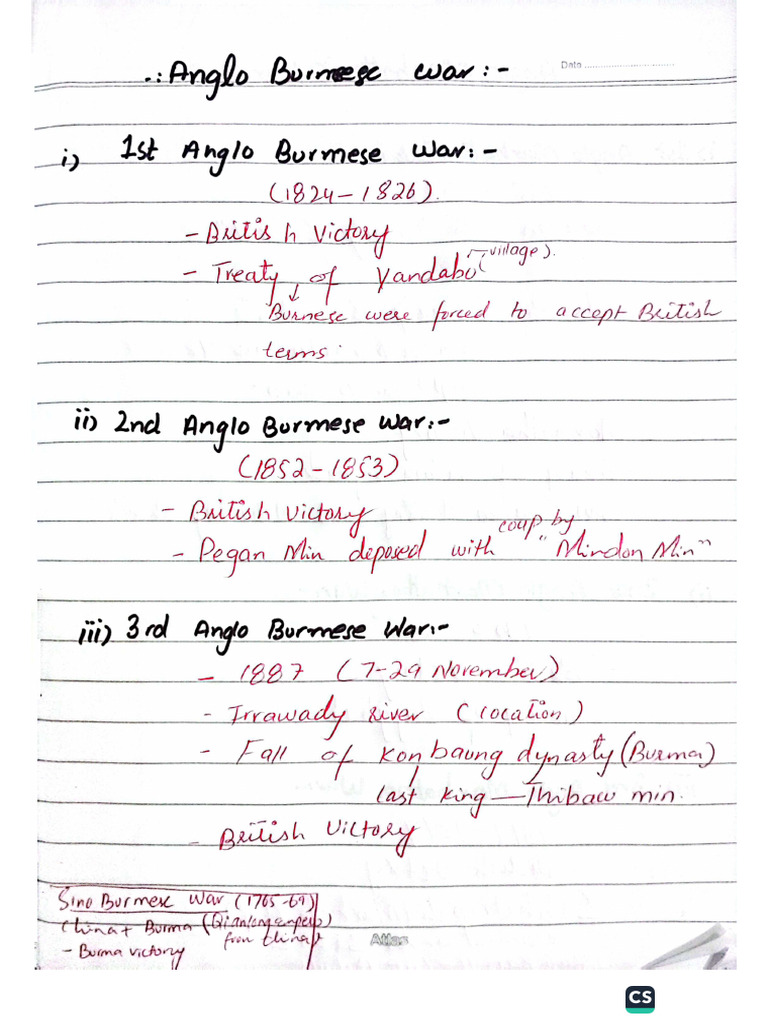 .: Anglo Burmese war :-
Date
i) 1st Anglo Burmese War :-
(1824-1826).
- British Victory
- Treaty of Yandabo (village).
Burnese were forced to accept British
terms.
ii) 2nd Anglo Burmese War :-
(1852-1853)
- British Victory
- Pegan Min deposed with coup by "Mindon Min"
iii) 3rd Anglo Burmese War :-
- 1887 (7-29 November)
- Irrawady River (location)
- Fall of Konbaung dynasty (Burma)
last king - Thibaw min.
- British Victory
Sino Burmese War (1765-69)
China + Burma (
from China
- Burma victory
Atlas
CS